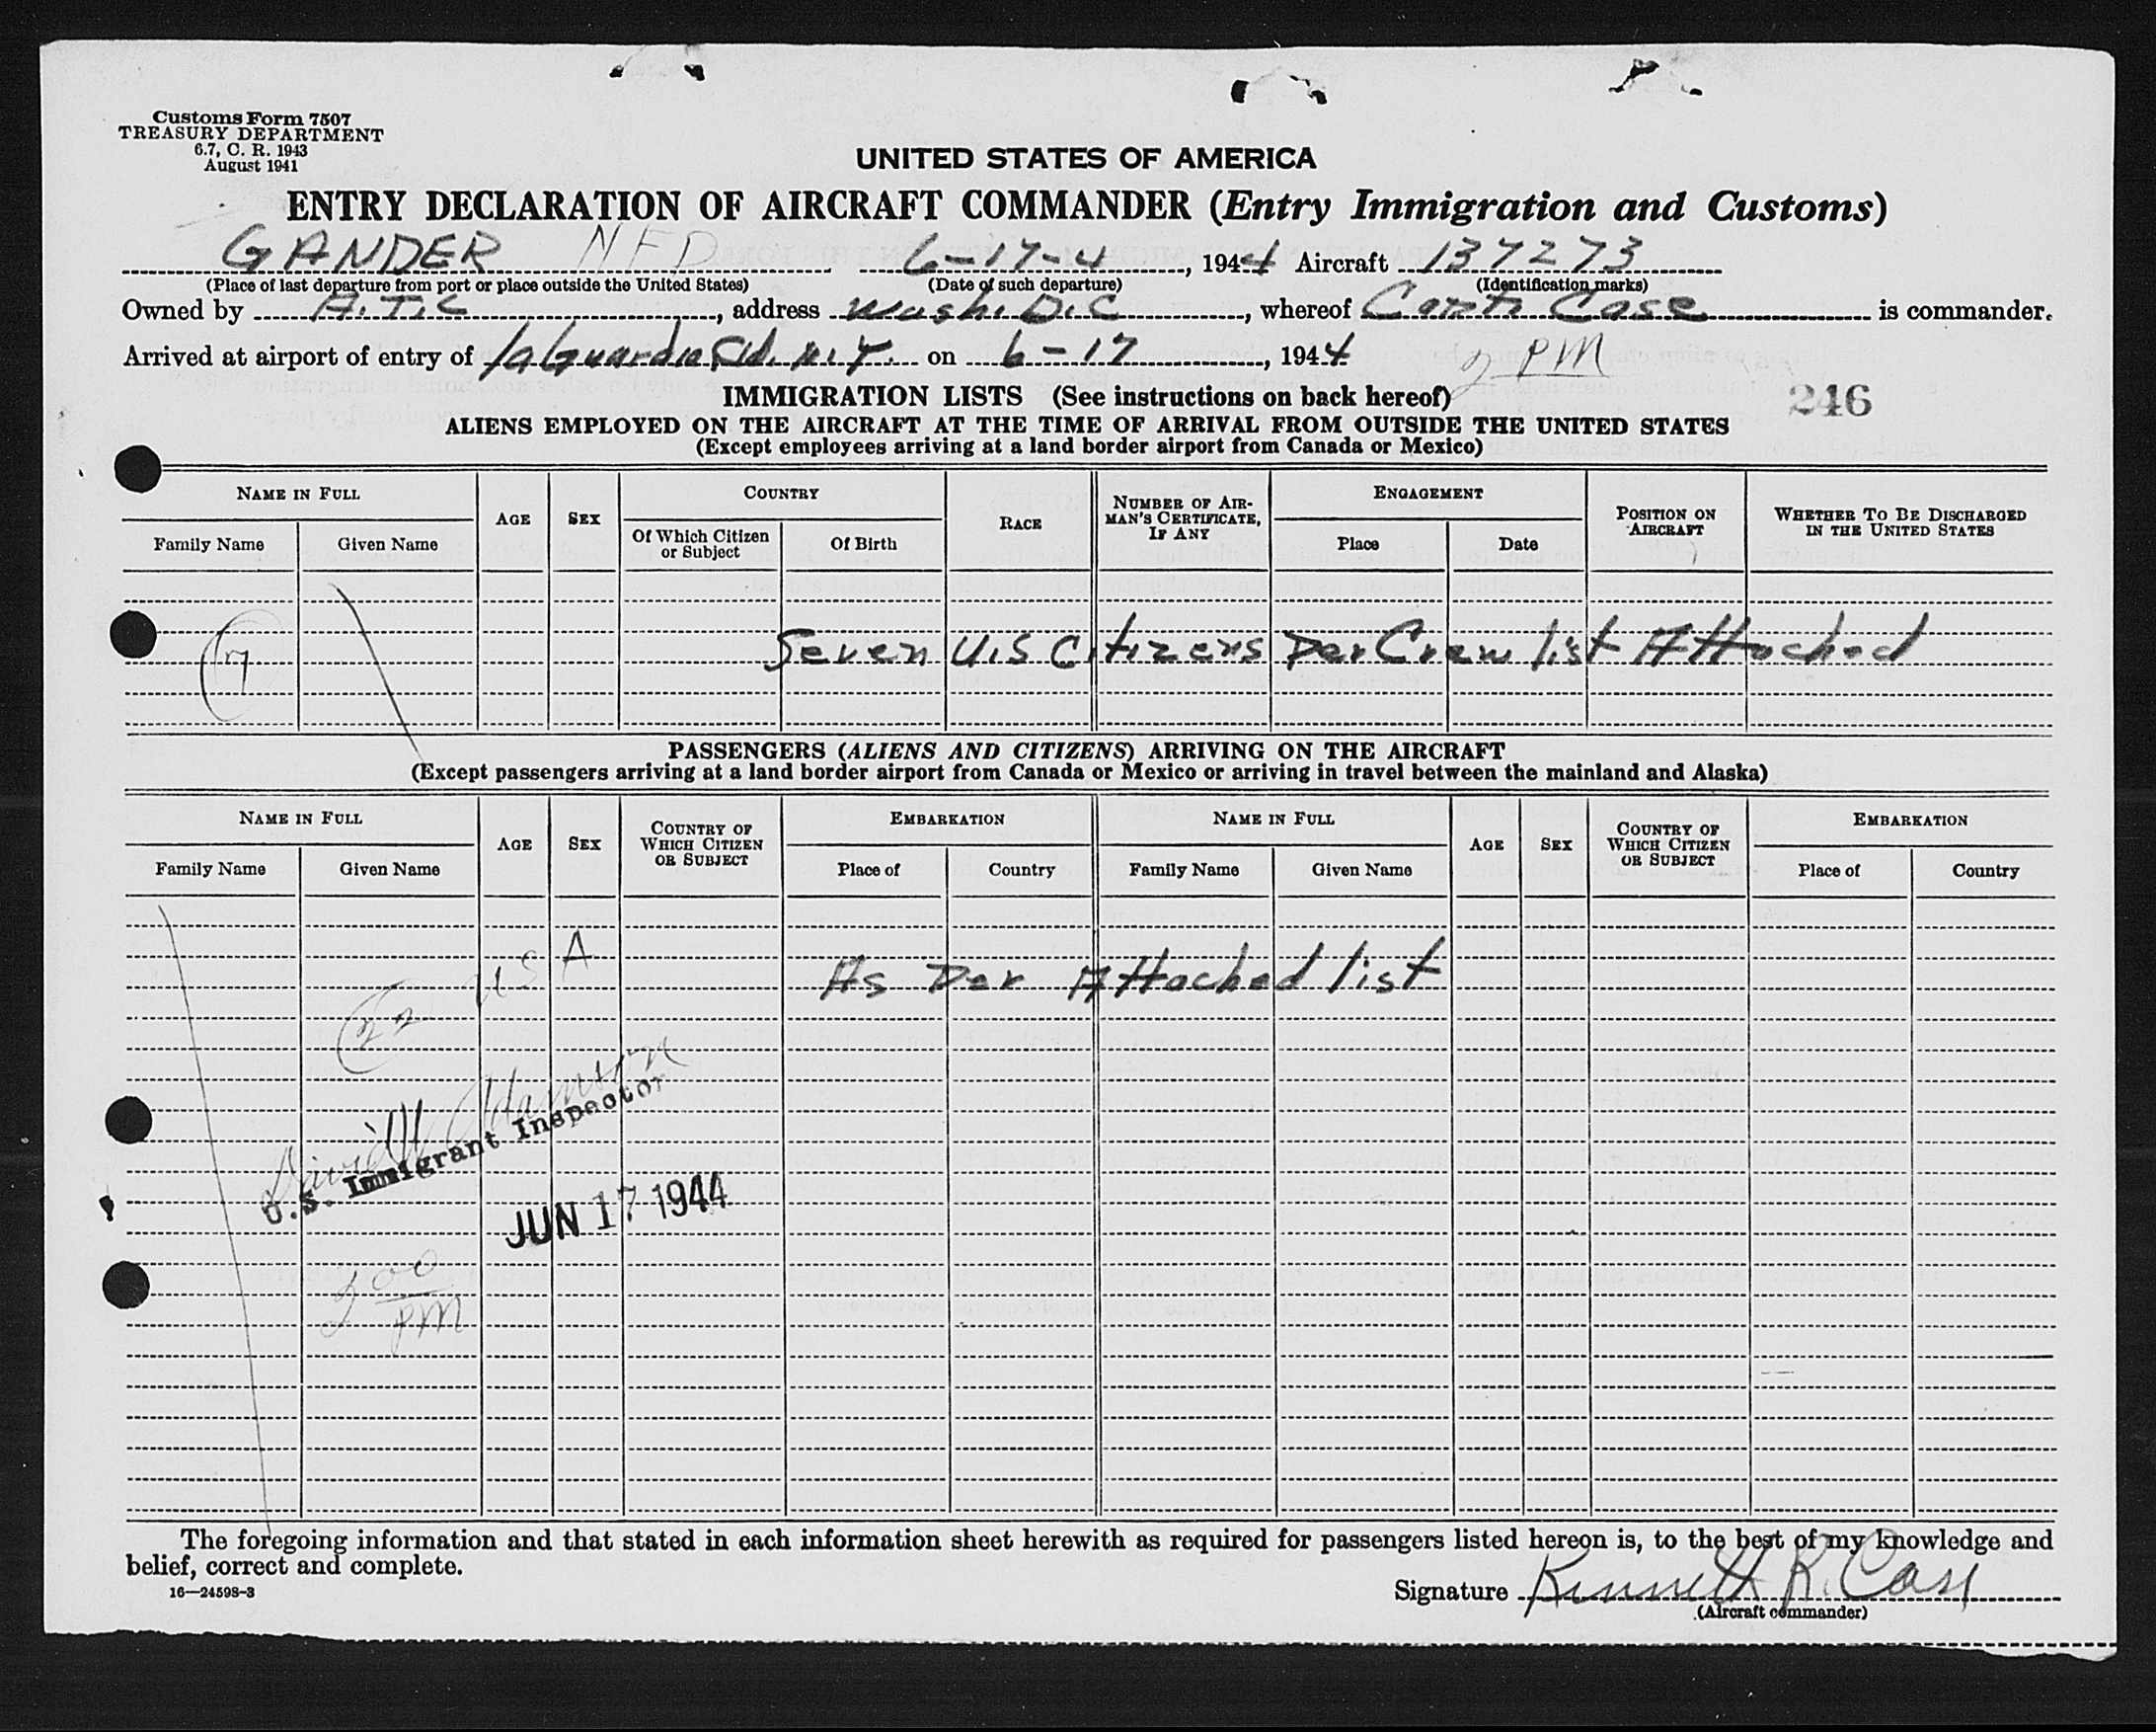 Customs Form 7507
TREASURY DEPARTMENT
6.7, C. R. 1943
August 1941
UNITED STATES OF AMERICA
ENTRY DECLARATION OF AIRCRAFT COMMANDER (Entry Immigration and Customs)
GANDER NFD 6-17-4, 1944 Aircraft 137273
(Place of last departure from port or place outside the United States) (Date of such departure) (Identification marks)
Owned by A.T.C, address Wash. D.C, whereof Capt. Case is commander.
Arrived at airport of entry of LaGuardia Fld. N.Y. on 6-17, 1944 2 PM
IMMIGRATION LISTS (See instructions on back hereof)
246
ALIENS EMPLOYED ON THE AIRCRAFT AT THE TIME OF ARRIVAL FROM OUTSIDE THE UNITED STATES
(Except employees arriving at a land border airport from Canada or Mexico)
NAME IN FULL
Family Name Given Name
AGE
SEX
COUNTRY
Of Which Citizen or Subject Of Birth
RACE
NUMBER OF AIR-
MAN'S CERTIFICATE,
IF ANY
ENGAGEMENT
Place Date
POSITION ON
AIRCRAFT
WHETHER TO BE DISCHARGED
IN THE UNITED STATES
7 Seven U.S Citizens Per Crew list Attached
PASSENGERS (ALIENS AND CITIZENS) ARRIVING ON THE AIRCRAFT
(Except passengers arriving at a land border airport from Canada or Mexico or arriving in travel between the mainland and Alaska)
NAME IN FULL
Family Name Given Name
AGE
SEX
COUNTRY OF
WHICH CITIZEN
OR SUBJECT
EMBARKATION
Place of Country
NAME IN FULL
Family Name Given Name
AGE
SEX
COUNTRY OF
WHICH CITIZEN
OR SUBJECT
EMBARKATION
Place of Country
22 USA As Per Attached list
U.S. Immigrant Inspector
JUN 17 1944
2 00 PM
The foregoing information and that stated in each information sheet herewith as required for passengers listed hereon is, to the best of my knowledge and
belief, correct and complete.
16—24598-3
Signature Kenneth R. Case
(Aircraft commander)